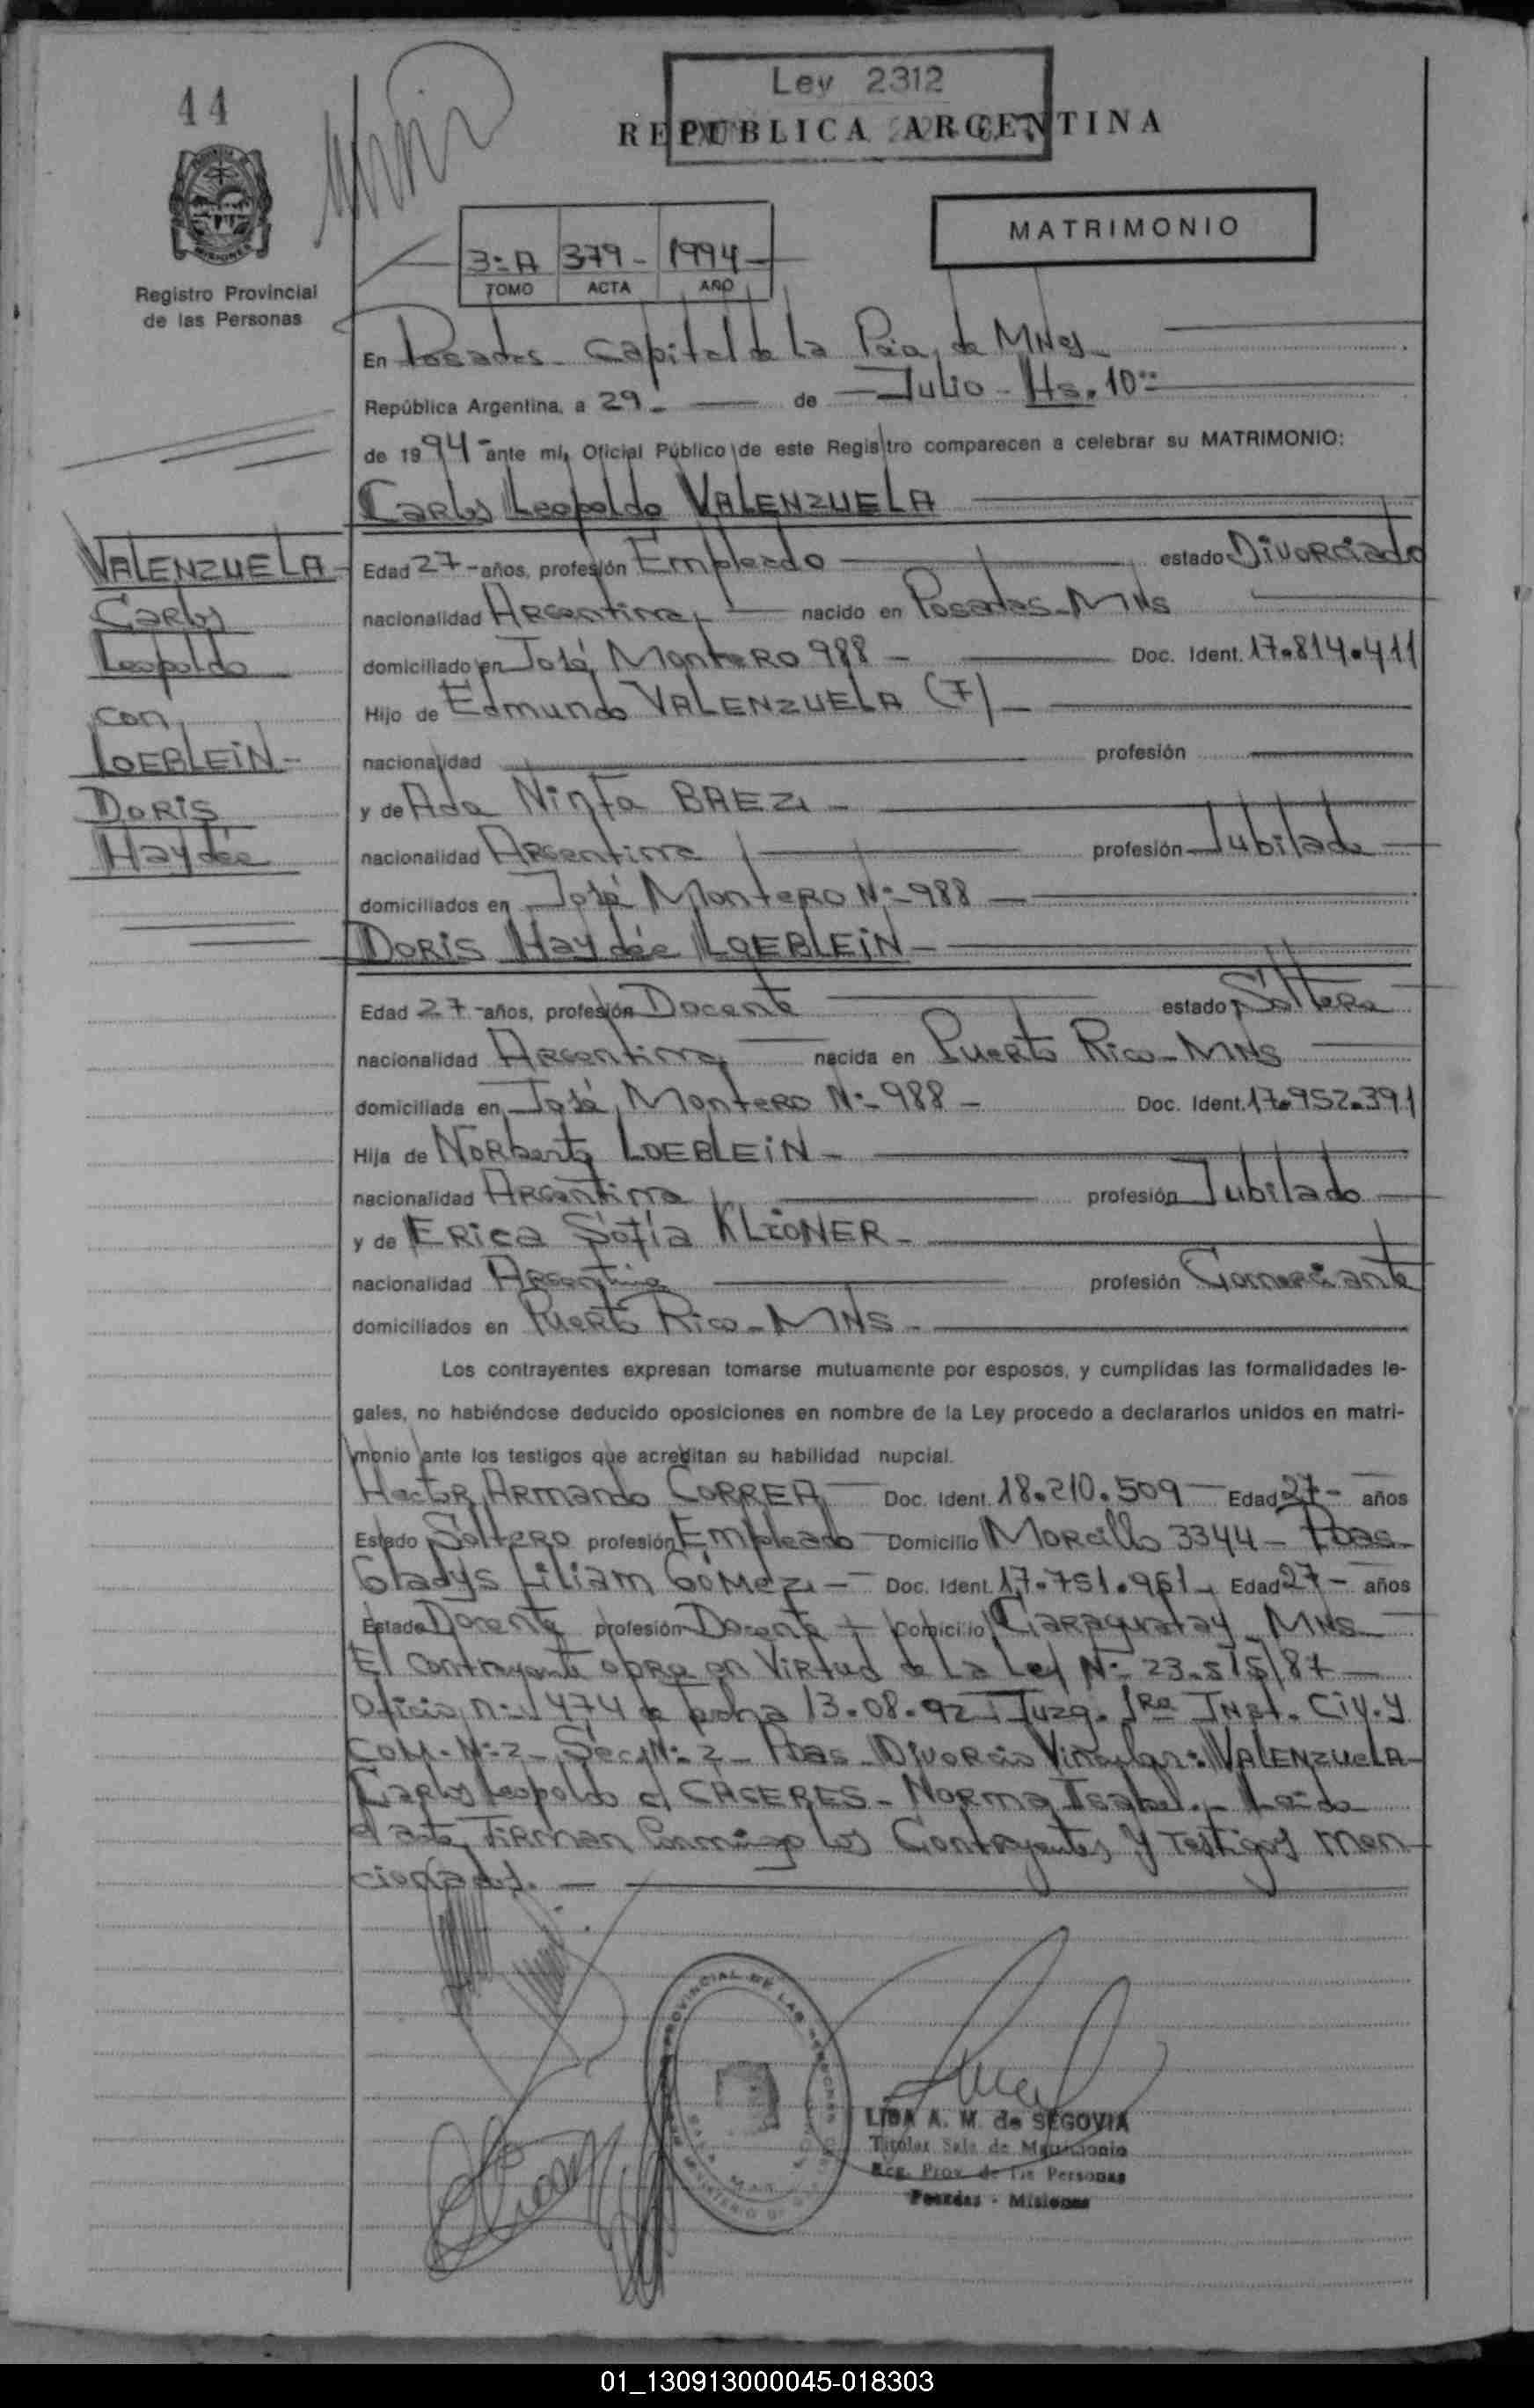 44
Ley 2312
REPUBLICA ARGENTINA
MATRIMONIO
3º A 379 - 1994 -
TOMO ACTA AÑO
Registro Provincial
de las Personas
En Posadas - Capital de la Pcia. de Mnes -
República Argentina, a 29 - de Julio - Hs. 10
de 1994 - ante mí, Oficial Público de este Registro comparecen a celebrar su MATRIMONIO:
Carlos Leopoldo VALENZUELA
VALENZUELA
Carlos
Leopoldo
con
LOEBLEIN -
Doris
Haydée
Edad 27 - años, profesión Empleado estado Divorciado
nacionalidad Argentina nacido en Posadas - Mns
domiciliado en José Montero 988 - Doc. Ident. 17.814.411
Hijo de Edmundo VALENZUELA (F) -
nacionalidad profesión
y de Ada Ninfa BAEZ -
nacionalidad Argentina profesión Jubilada
domiciliados en José Montero Nº 988 -
DORIS Haydée LOEBLEIN -
Edad 27 - años, profesión Docente estado Soltera
nacionalidad Argentina nacida en Puerto Rico - MNS
domiciliada en José Montero Nº 988 - Doc. Ident. 17.952.391
Hija de Norberto LOEBLEIN -
nacionalidad Argentina profesión Jubilado
y de ERica Sofía KLIONER -
nacionalidad Argentina profesión Comerciante
domiciliados en Puerto Rico - MNS -
Los contrayentes expresan tomarse mutuamente por esposos, y cumplidas las formalidades le-
gales, no habiéndose deducido oposiciones en nombre de la Ley procedo a declararlos unidos en matri-
monio ante los testigos que acreditan su habilidad nupcial.
Hector Armando CORREA Doc. Ident. 18.210.509 - Edad 27 - años
Estado Soltero profesión Empleado Domicilio Morcillo 3344 - Pdas -
Gladys Liliam GÓMEZ - Doc. Ident. 17.751.951 Edad 27 - años
Estado Docente profesión Docente Domicilio Caraguatay - MNS
El contrayente obra en virtud de la Ley Nº 23.515/87 -
Oficio nº 1474 de fecha 13.08.92 Juzg. 1ra Inst. Civ. y
Com. Nº 2 - Sec. Nº 2 - Pdas - Divorcio Vincular: VALENZUELA
Carlos Leopoldo c/ CACERES - Norma Isabel. - Leída
el acta, firman conmigo los Contrayentes y Testigos men-
cionados. -
LIDA A. M. de SEGOVIA
Titular Sala de Matrimonio
Reg. Prov. de las Personas
Posadas - Misiones
01_130913000045-018303